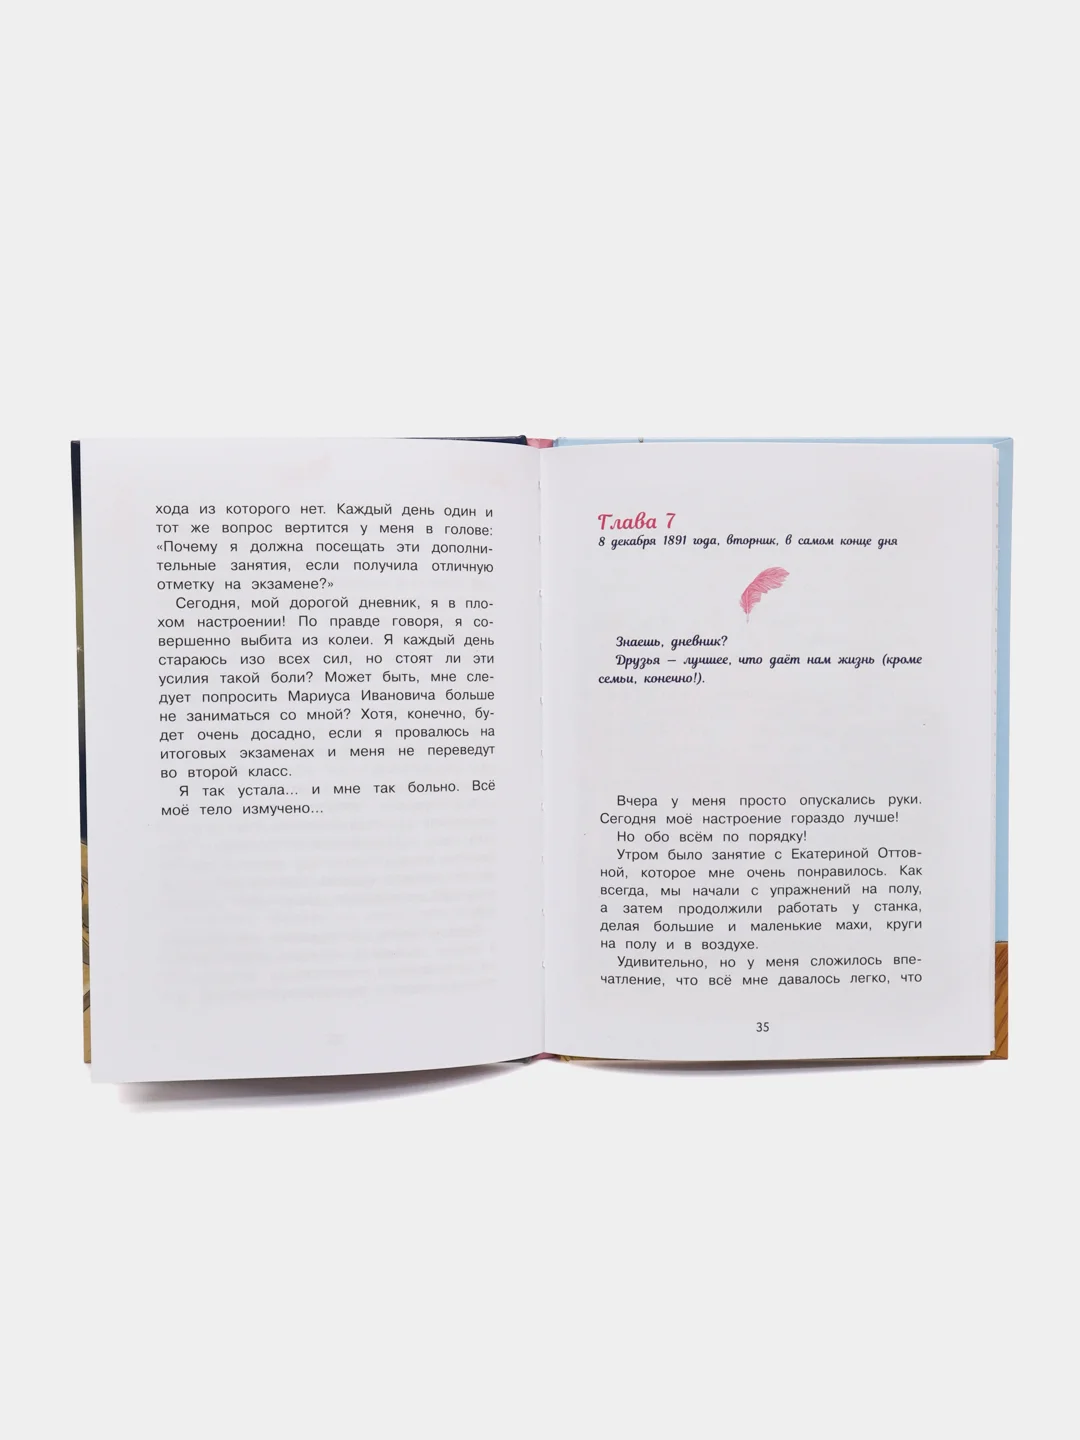 хода из которого нет. Каждый день один и
тот же вопрос вертится у меня в голове:
«Почему я должна посещать эти дополни-
тельные занятия, если получила отличную
отметку на экзамене?»
Сегодня, мой дорогой дневник, я в пло-
хом настроении! По правде говоря, я со-
вершенно выбита из колеи. Я каждый день
стараюсь изо всех сил, но стоят ли эти
усилия такой боли? Может быть, мне сле-
дует попросить Мариуса Ивановича больше
не заниматься со мной? Хотя, конечно, бу-
дет очень досадно, если я провалюсь на
итоговых экзаменах и меня не переведут
во второй класс.
Я так устала... и мне так больно. Всё
моё тело измучено...
Глава 7
8 декабря 1891 года, вторник, в самом конце дня
Знаешь, дневник?
Друзья — лучшее, что даёт нам жизнь (кроме
семьи, конечно!).
Вчера у меня просто опускались руки.
Сегодня моё настроение гораздо лучше!
Но обо всём по порядку!
Утром было занятие с Екатериной Оттов-
ной, которое мне очень понравилось. Как
всегда, мы начали с упражнений на полу,
а затем продолжили работать у станка,
делая большие и маленькие махи, круги
на полу и в воздухе.
Удивительно, но у меня сложилось впе-
чатление, что всё мне давалось легко, что
35